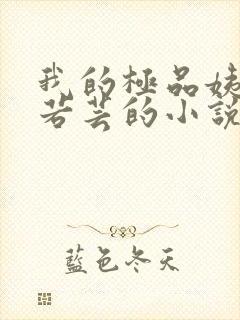 我的極品姨
若芸的小說
藍色冬天